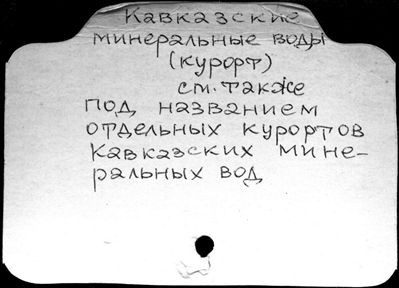 Кавказские
минеральные воды
(курорт)
см. также
под названием
отдельных курортов
Кавказских мине-
ральных вод